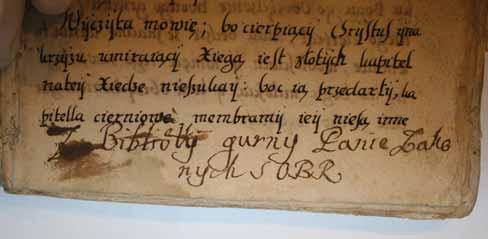 Wyczyta mowię; bo cierpiący Crystus yna
krzyżu umiraiący Xięgą iest złotych kapitel
natey Xiedze nieszukay: boc ią przedarły, ka
pitella cierniowe membramy iey niesą inne
Z Biblioty gurny Panie Zako
nych S OBR